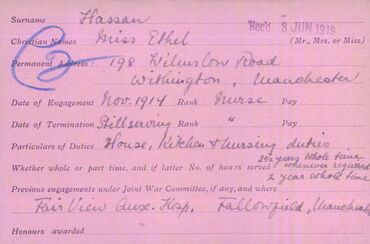 Surname Hassan
Rec'd 3 JUN 1919
Christian Names Miss Ethel (Mr., Mrs. or Miss)
Permanent Address: 198 Wilmslow Road
Withington, Manchester
Date of Engagement Nov. 1914 Rank Nurse Pay
Date of Termination Still serving Rank " Pay
Particulars of Duties House, Kitchen & nursing duties
2½ years whole time
Whether whole or part time, and if latter No. of hours served whenever required
2 year whole time
Previous engagements under Joint War Committee, if any, and where
Fair View Aux. Hosp. Fallowfield, Manchester
Honours awarded